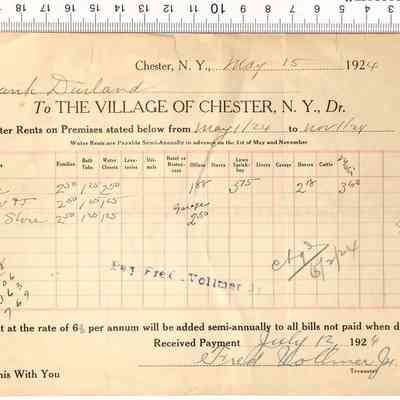 18 17 16 15 14 13 12 11 10 9 8 7 6 5 4 3 2 1 0
Chester, N. Y., May 15 1924
ank Durland
To THE VILLAGE OF CHESTER, N. Y., Dr.
ter Rents on Premises stated below from May 1/24 to Nov 1/24
Water Rents are Payable Semi-Annually in advance on the 1st of May and November
Families Bath Tubs Water Closets Lava- tories Uri- nals Hotel or Restau- rant Offices Stores Lawn Sprink- ling Livery Garage Horses Cattle
2 50 1 25 2 50 1 88 3 75 2 18 3 60
2 50 1 25 1 25 garage
Store 2 50 1 25 1 25 2 50
chg 3
6/2/24
Pay Fred Vollmer Jr.
st at the rate of 6% per annum will be added semi-annually to all bills not paid when d
Received Payment July 12 1924
Fred Vollmer Jr.
Treasurer
his With You